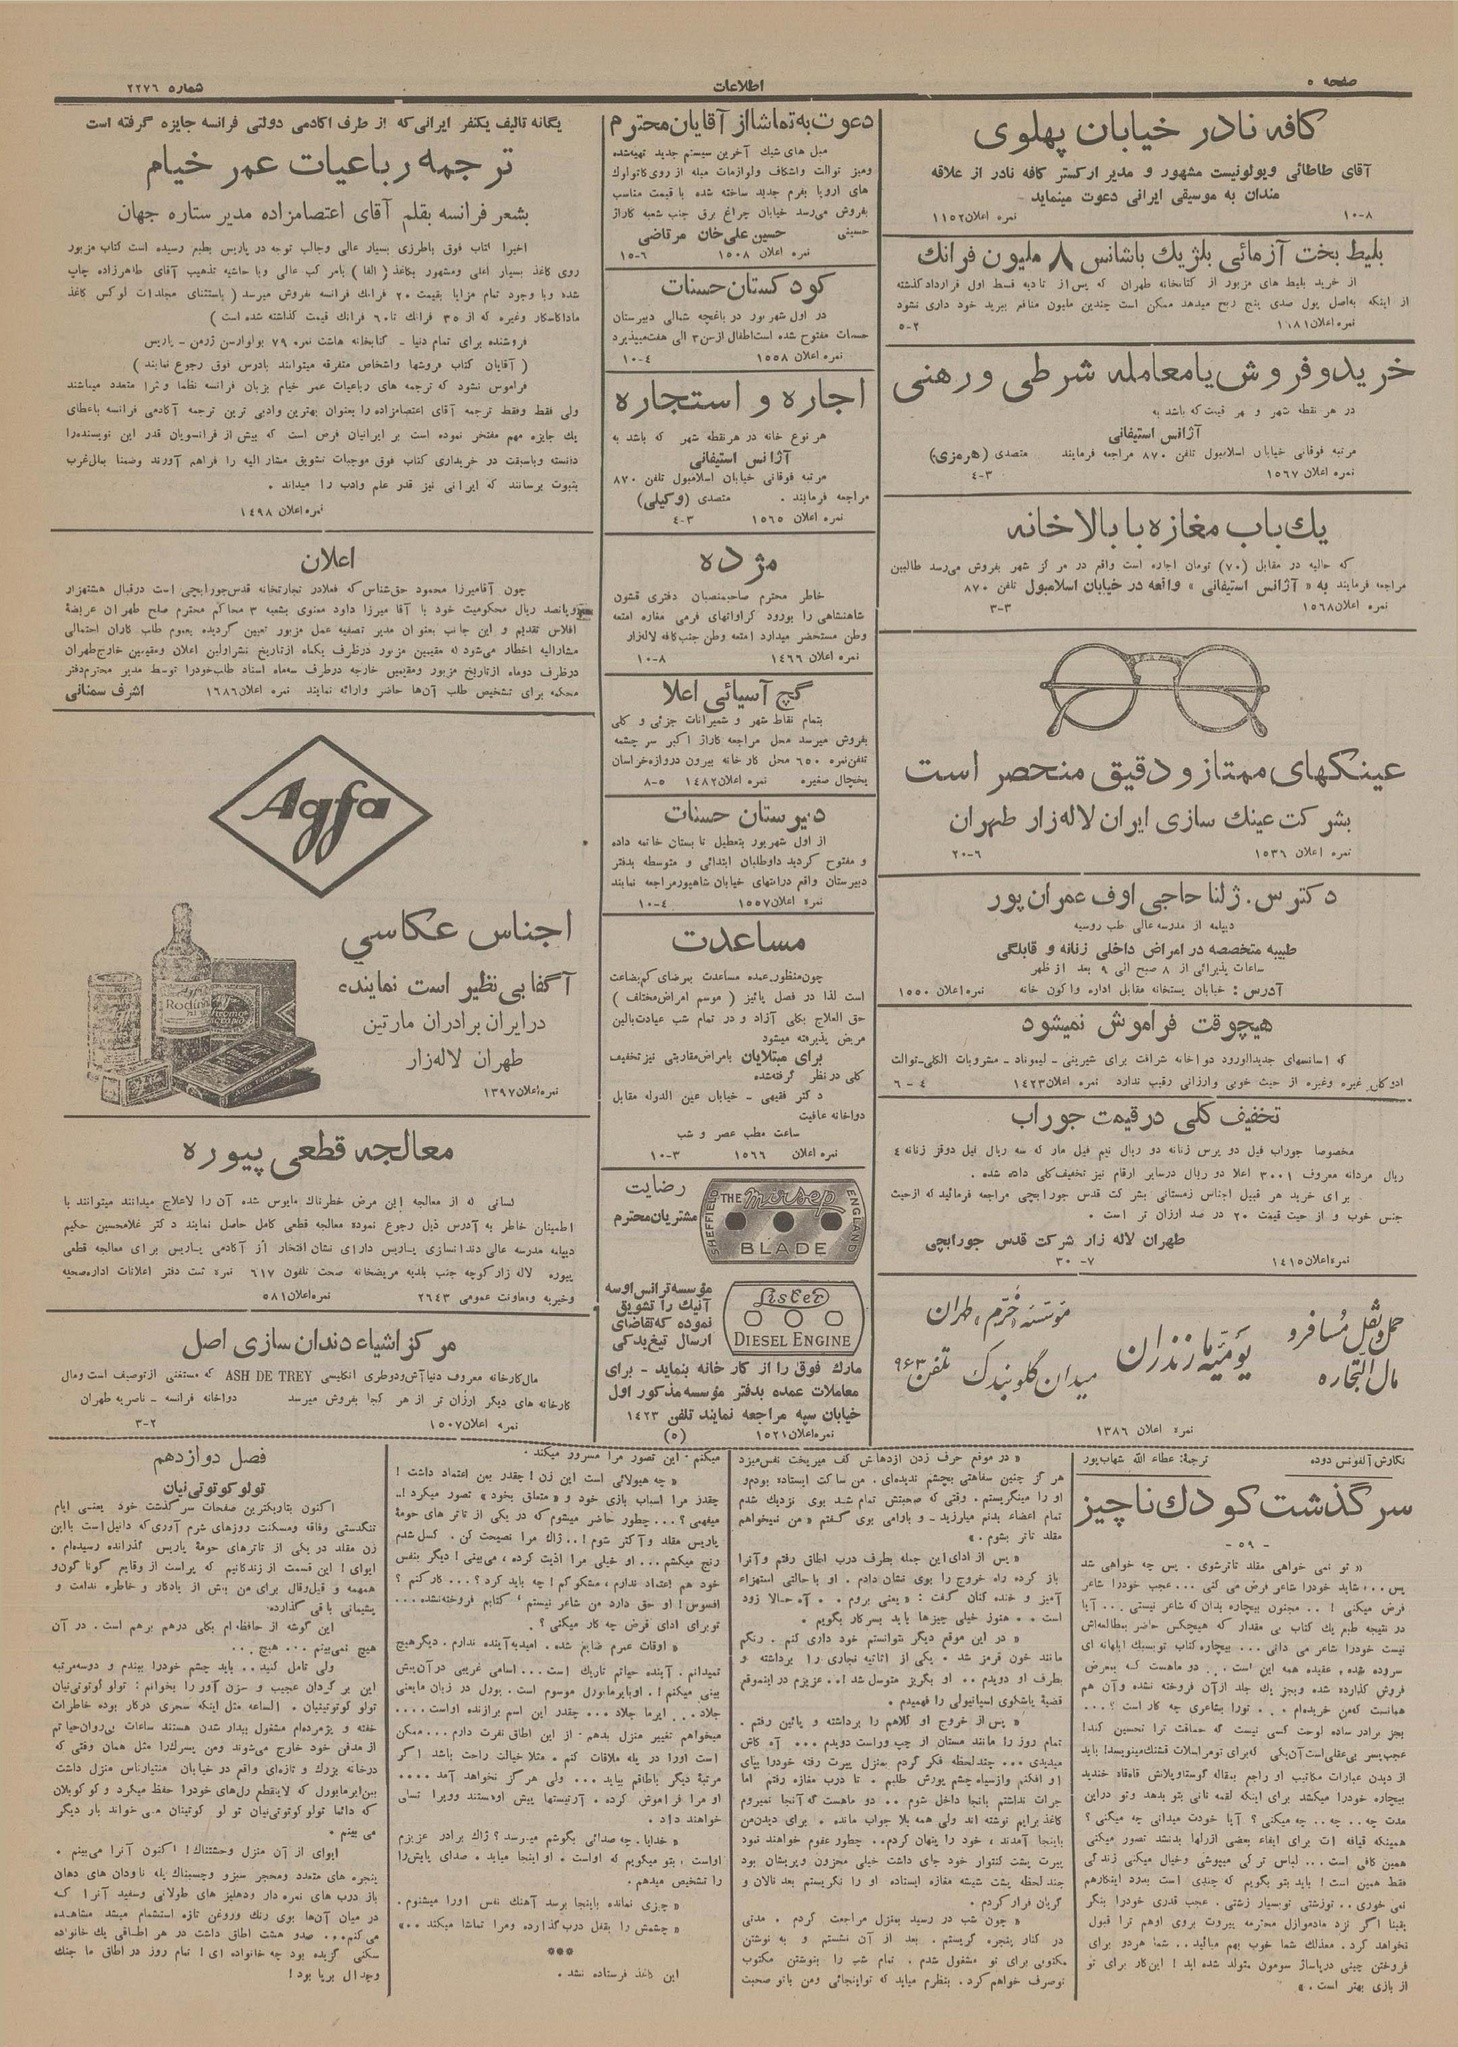 صفحه ۵
اطلاعات
شماره ۲۲۷۶
کافه نادر خیابان پهلوی
آقای طاطائی ویولونیست مشهور و مدیر ارکستر کافه نادر از علاقه
مندان به موسیقی ایرانی دعوت مینماید
۱۰-۸ نمره اعلان ۱۱۵۲
بلیط بخت آزمائی بلژیک باشانس ۸ ملیون فرانک
از خرید بلیط های مزبور از کتابخانه طهران که پس از تادیه قسط اول قرارداد گذشته
از اینکه به‌اصل پول صدی پنج ربح میدهد ممکن است چندین ملیون منافع ببرید خود داری نشود
نمره اعلان ۱۱۸۱ ۵-۲
خرید و فروش یا معامله شرطی و رهنی
در هر نقطه شهر و بهر قیمت که باشد به
آژانس استیفانی
مرتبه فوقانی خیابان اسلامبول تلفن ۸۷۰ مراجعه فرمایند متصدی (هرمزی)
نمره اعلان ۱۵۶۷ ۴-۳
یک باب مغازه با بالاخانه
که حالیه در مقابل (۷۰) تومان اجاره است واقع در مرکز شهر بفروش می‌رسد طالبین
مراجعه فرمایند به « آژانس استیفانی » واقعه در خیابان اسلامبول تلفن ۸۷۰
نمره اعلان ۱۵۶۸ ۳-۳
عینکهای ممتاز و دقیق منحصر است
بشرکت عینک سازی ایران لاله‌زار طهران
نمره اعلان ۱۵۳۶ ۲۰-۶
دکتر س. ژلنا حاجی اوف عمران پور
دیپلمه از مدرسه عالی طب روسیه
طبیبه متخصصه در امراض داخلی زنانه و قابلگی
ساعات پذیرائی از ۸ صبح الی ۹ بعد از ظهر
آدرس : خیابان پستخانه مقابل اداره واگون خانه نمره اعلان ۱۵۵۰
هیچوقت فراموش نمیشود
که اسانسهای جدیدالورود دواخانه شرافت برای شیرینی - لیموناد - مشروبات الکلی - توالت
ادوکلن غیره وغیره از حیث خوبی وارزانی رقیب ندارد نمره اعلان ۱۴۲۳ ۶ - ۴
تخفیف کلی در قیمت جوراب
مخصوصا جوراب فیل دو پرس زنانه دو ریال نیم فیل مار که سه ریال فیل دوقز زنانه ۴
ریال مردانه معروف ۳۰۰۱ اعلا دو ریال درسایر ارقام نیز تخفیف کلی داده شده .
برای خرید هر قبیل اجناس زمستانی بشرکت قدس جورابچی مراجعه فرمائید که از حیث
جنس خوب و از حیث قیمت ۲۰ در صد ارزان تر است .
طهران لاله زار شرکت قدس جورابچی
نمره اعلان ۱۴۱۵ ۳۰ - ۷
حمل و نقل مسافر و
مال التجاره
یومیه مازندران
مؤسسه خرم طهران
میدان گلوبندک تلفن ۹۶۳
نمره اعلان ۱۳۸۶
دعوت به تماشا از آقایان محترم
مبل های شیک آخرین سیستم جدید تهیه‌شده
ومیز توالت واشکاف ولوازمات مبله از روی کاتولوک
های اروپا بفرم جدید ساخته شده با قیمت مناسب
بفروش می‌رسد خیابان چراغ برق جنب شعبه کاراژ
حسینی حسین علی خان مرتاضی
نمره اعلان ۱۵۰۸ ۱۵-۶
کودکستان حسنات
در اول شهریور در باغچه شمالی دبیرستان
حسنات مفتوح شده است اطفال از سن ۳ الی هفت میپذیرد
نمره اعلان ۱۵۵۸ ۱۰-۴
اجاره و استجاره
هر نوع خانه در هر نقطه شهر که باشد به
آژانس استیفانی
مرتبه فوقانی خیابان اسلامبول تلفن ۸۷۰
مراجعه فرمایند . متصدی (وکیلی)
نمره اعلان ۱۵۶۵ ۴-۳
مژده
خاطر محترم صاحبمنصبان دفتری قشون
شاهنشاهی را بورود کراواتهای فرمی مغازه امتعه
وطن مستحضر میدارد امتعه وطن جنب کافه لاله‌زار
نمره اعلان ۱۴۶۶ ۱۰-۸
گچ آسیائی اعلا
بتمام نقاط شهر و شمیرانات جزئی و کلی
بفروش میرسد محل مراجعه کاراژ اکبر سر چشمه
تلفن نمره ۶۵۰ محل کارخانه بیرون دروازه خراسان
یخچال صفیره نمره اعلان ۱۴۸۲ ۸-۵
دبیرستان حسنات
از اول شهریور بتعطیل تابستان خاتمه داده
و مفتوح گردید داوطلبان ابتدائی و متوسطه بدفتر
دبیرستان واقع در انتهای خیابان شاهپور مراجعه نمایند
نمره اعلان ۱۵۵۷ ۱۰-۴
مساعدت
چون منظور عمده مساعدت بمرضای کم بضاعت
است لذا در فصل پائیز ( موسم امراض مختلف )
حق العلاج بکلی آزاد و در تمام شب عیادت بالین
مریض پذیرفته میشود
برای مبتلایان بامراض مقاربتی نیز تخفیف
کلی در نظر گرفته شده
دکتر فقیهی - خیابان عین الدوله مقابل
دواخانه عافیت
ساعت مطب عصر و شب
نمره اعلان ۱۵۶۶ ۱۰-۳
رضایت
مشتریان محترم
THE Mirsep BLADE
SHEFFIELD ENGLAND
مؤسسه ترانس اوسه
آنیک را تشویق
نموده که تقاضای
ارسال تیغ یدکی
Lister
DIESEL ENGINE
مارک فوق را از کار خانه بنماید - برای
معاملات عمده بدفتر مؤسسه مذکور اول
خیابان سپه مراجعه نمایند تلفن ۱۴۲۳
نمره اعلان ۱۵۲۱ (۵)
یگانه تالیف یکنفر ایرانی که از طرف اکادمی دولتی فرانسه جایزه گرفته است
ترجمه رباعیات عمر خیام
بشعر فرانسه بقلم آقای اعتصامزاده مدیر ستاره جهان
اخیرا کتاب فوق باطرزی بسیار عالی وجالب توجه در پاریس بطبع رسیده است کتاب مزبور
روی کاغذ بسیار اعلی ومشهور بکاغذ ( الفا ) بامرکب عالی وبا حاشیه تذهیب آقای طاهرزاده چاپ
شده وبا وجود تمام مزایا بقیمت ۲۰ فرانک فرانسه بفروش میرسد ( باستثنای مجلدات لوکس کاغذ
ماداکاسکار وغیره که از ۳۵ فرانک تا ۶۰ فرانک قیمت گذاشته شده است )
فروشنده برای تمام دنیا - کتابخانه هاشت نمره ۷۹ بولوارسن ژرمن - پاریس
( آقایان کتاب فروشها واشخاص متفرقه میتوانند بادرس فوق رجوع نمایند )
فراموش نشود که ترجمه های رباعیات عمر خیام بزبان فرانسه نظما و نثرا متعدد میباشند
ولی فقط وفقط ترجمه آقای اعتصامزاده را بعنوان بهترین وادبی ترین ترجمه آکادمی فرانسه باعطای
یک جایزه مهم مفتخر نموده است بر ایرانیان فرض است که بیش از فرانسویان قدر این نویسنده را
دانسته وباسبقت در خریداری کتاب فوق موجبات تشویق مشار الیه را فراهم آورند وضمنا بملل غرب
بثبوت برسانند که ایرانی نیز قدر علم وادب را میداند .
نمره اعلان ۱۴۹۸
اعلان
چون آقامیرزا محمود حق شناس که فعلا در تجارتخانه قدس جورابچی است درقبال هشتهزار
وپانصد ریال محکومیت خود با آقا میرزا داود معنوی بشعبه ۳ محاکم محترم صلح طهران عریضهٔ
افلاس تقدیم و این جانب بعنوان مدیر تصفیه عمل مزبور تعیین گردیده بعموم طلب کاران احتمالی
مشارالیه اخطار می‌شود که مقیمین مزبور در ظرف یکماه از تاریخ نشر اولین اعلان ومقیمین خارج طهران
درظرف دوماه از تاریخ مزبور ومقیمین خارجه درظرف سه‌ماه اسناد طلب خودرا توسط مدیر محترم دفتر
محکمه برای تشخیص طلب آن‌ها حاضر وارائه نمایند نمره اعلان ۱۶۸۶ اشرف سمنانی
Agfa
اجناس عکاسی
آگفا بی نظیر است نماینده
در ایران برادران مارتین
طهران لاله‌زار
نمره اعلان ۱۳۹۷
Rodinal
معالجه قطعی پیوره
کسانی که از معالجه این مرض خطرناک مایوس شده آن را لاعلاج میدانند میتوانند با
اطمینان خاطر به آدرس ذیل رجوع نموده معالجه قطعی کامل حاصل نمایند دکتر غلامحسین حکیم
دیپلمه مدرسه عالی دندانسازی پاریس دارای نشان افتخار از آکادمی پاریس برای معالجه قطعی
پیوره لاله زار کوچه جنب بلدیه مریضخانه صحت تلفون ۶۱۷ نمره ثبت دفتر اعلانات اداره صحیه
وخیریه ومعاونت عمومی ۲۶۴۳ نمره اعلان ۵۸۱
مرکز اشیاء دندان سازی اصل
مال کارخانه معروف دنیا آش ودوطری انگلیسی ASH DE TREY که مستغنی از توصیف است ومال
کارخانه های دیگر ارزان تر از هر کجا بفروش میرسد دواخانه فرانسه - ناصریه طهران
نمره اعلان ۱۵۰۷ ۳-۲
نگارش آلفونس دوده ترجمهٔ: عطاء الله شهاب‌پور
سرگذشت کودک ناچیز
- ۵۹ -
« تو نمی خواهی مقلد تاترشوی . پس چه خواهی شد
پس... شاید خودرا شاعر فرض می کنی ... عجب خودرا شاعر
فرض میکنی ! .. مجنون بیچاره بدان که شاعر نیستی ... آیا
در نتیجه طبع یک کتاب بی مقدار که هیچکس حاضر بمطالعه‌اش
نیست خودرا شاعر می دانی ... بیچاره کتاب توبسبک ابلهانه ای
سروده شده، عقیده همه این است . . دو ماهست که بمعرض
فروش گذارده شده وبجز یک جلد از آن فروخته نشده وآن هم
همانست که‌من خریده‌ام . . . تورا بشاعری چه کار است ؟...
بجز برادر ساده لوحت کسی نیست که حماقت ترا تحسین کند!
عجب پسر بی عقلی است آن یکی که برای تومراسلات قشنک مینویسد! باید
از دیدن عبارات مکاتیب او راجع بمقاله گوستاوپلانش قاه‌قاه خندید
بیچاره خودرا میکشد برای اینکه لقمه نانی بتو بدهد وتو دراین
مدت چه.. چه.. چه میکنی ؟ آیا خودت میدانی چه میکنی ؟
همینکه قیافه ات برای ایفاء بعضی ازرلها بدنشد تصور میکنی
همین کافی است ... لباس ترکی میپوشی وخیال میکنی زندگی
فقط همین است ! باید بتو بگویم که چندی است بدرد اینکارهم
نمی خوری.. توزشتی توبسیار زشتی . عجب قدری خودرا بنگر
یقینا اگر نزد مادموازل محترمه بیروت بروی اوهم ترا قبول
نخواهد کرد. معذلک شما خوب بهم میائید.. شما هردو برای
فروختن چینی درپاساژ سومون متولد شده اید ! این‌کار برای تو
از بازی بهتر است . »
« در موقع حرف زدن از دهانش کف میریخت نفس میزد
هر گز چنین سفاهتی بچشم ندیده‌ای. من ساکت ایستاده بودم و
او را مینگریستم. وقتی که صحبتش تمام شد بوی نزدیک شدم
تمام اعضاء بدنم میلرزید - و بارامی بوی گفتم « من نمیخواهم
مقلد تاتر بشوم . »
« پس از ادای این جمله بطرف درب اطاق رفتم وآنرا
باز کرده راه خروج را بوی نشان دادم . او باحالتی استهزاء
آمیز و خنده کنان گفت : « یعنی بروم . . آه حالا زود
است . . هنوز خیلی چیزها باید بسرکار بگویم .
« در این موقع دیگر نتوانستم خود داری کنم . رنگم
مانند خون قرمز شد . یکی از اثاثیه نجاری را برداشته و
بطرف او دویدم .. او بگریز متوسل شد !.. عزیزم در اینموقع
قضیهٔ پاشکوی اسپانیولی را فهمیدم .
« پس از خروج او کلاهم را برداشته و پائین رفتم .
تمام روز را مانند مستان از چپ وراست دویدم ... آه کاش
میدیدی ... چند لحظه فکر کردم بمنزل پیرت رفته خودرا بپای
او افکنم وازسیاه چشم پوزش طلبم . تا درب مغازه رفتم اما
جرات نداشتم بانجا داخل شوم .. دو ماهست که آنجا نمیروم
کاغذ برایم نوشته اند ولی همه بلا جواب مانده . برای دیدن من
باینجا آمدند ، خود را پنهان کردم.. چطور عفوم خواهند نمود
پیرت پشت کنتوار خود جای داشت خیلی محزون وپریشان بود
چند لحظه پشت شیشه مغازه ایستاده او را نگریستم بعد نالان و
گریان فرار کردم .
« چون شب در رسید بمنزل مراجعت کردم . مدتی
در کنار پنجره گریستم . بعد از آن نشستم و به نوشتن
مکتوبی برای تو مشغول شدم . تمام شب را بنوشتن مکتوب
توصرف خواهم کرد. بنظرم میاید که تواینجائی ومن باتو صحبت
میکنم . این تصور مرا مسرور میکند .
« چه هیولائی است این زن ! چقدر بمن اعتماد داشت !
چقدر مرا اسباب بازی خود و « متعلق بخود » تصور میکرد !..
میفهمی ؟ ... چطور حاضر میشوم که در یکی از تاتر های حومهٔ
پاریس مقلد وآکتر شوم !.. ژاک مرا نصیحت کن . کسل شدم
رنج میکشم ... او خیلی مرا اذیت کرده ، می‌بینی ! دیگر بنفس
خود هم اعتماد ندارم ، مشکوکم ! چه باید کرد ؟ ... کار کنم ؟
افسوس ! او حق دارد من شاعر نیستم ، کتابم فروخته نشده...
توبرای ادای قرض چه کار میکنی ؟
« اوقات عمرم ضایع شده . امیدبه‌آینده ندارم . دیگر هیچ
نمیدانم . آینده حیاتم تاریک است ... اسامی غریبی در آن پیش
بینی میکنم !. اوباایرمابورل موسوم است . بورل در زبان مایعنی
جلاد... ایرما جلاد ... چقدر این اسم برازنده اوست ....
میخواهم تغییر منزل بدهم . از این اطاق نفرت دارم ... ممکن
است اورا در پله ملاقات کنم . مثلا خیالت راحت باشد اگر
مرتبهٔ دیگر باطاقم بیاید ... ولی هر گز نخواهد آمد ....
او مرا فراموش کرده . آرتیستها پیش اوهستند وویرا تسلی
خواهند داد .
« خدایا . چه صدائی بگوشم میرسد ؟ ژاک برادر عزیزم
اواست . بتو میگویم که اواست . او اینجا میاید . صدای پایش را
را تشخیص میدهم .
« چیزی نمانده باینجا برسد آهنک نفس اورا میشنوم .
« چشمش را بقفل درب گذارده ومرا تماشا میکند ..»
***
این کاغذ فرستاده نشد .
فصل دوازدهم
تولوکوتوتی‌نیان
اکنون بتاریکترین صفحات سرگذشت خود یعنی ایام
تنگدستی وفاقه ومسکنت روزهای شرم آوری که دانیل است بااین
زن مقلد در یکی از تاترهای حومهٔ پاریس گذرانده رسیده‌ام .
ایوای ! این قسمت از زندگانیم که پراست از وقایع گوناگون و
همهمه و قیل‌وقال برای من بیش از یادگار و خاطره ندامت و
پشیمانی باقی گذارده.
این گوشه از حافظه‌ام بکلی درهم برهم است . در آن
هیچ نمی‌بینم ... هیچ..
ولی تامل کنید.. باید چشم خودرا ببندم و دوسه‌مرتبه
این بر گردان عجیب و حزن آور را بخوانم : تولوکوتوتی‌نیان
تولو کوتوتینیان . الساعه مثل اینکه سحری درکار بوده خاطرات
خفته و پژمرده‌ام مشغول بیدار شدن هستند ساعات بی‌روان حیاتم
از مدفن خود خارج می‌شوند ومن پسرک‌را مثل همان وقتی که
درخانه بزرگ و تازه‌ای واقع در خیابان منتپارناس منزل داشت
بین‌ایرمابورل که لاینقطع رل‌های خودرا حفظ میکرد و کوکوبلان
که دائما تولوکوتوتی‌نیان تولو کوتینان می خواند بار دیگر
می بینم .
ایوای از آن منزل وحشتناک! اکنون آنرا می‌بینم .
پنجره های متعدد ومحجر سبزو وچسبناک پله ناودان های دهان
باز درب های نمره دار ودهلیز های طولانی وسفید آنرا که
در میان آن‌ها بوی رنک وروغن تازه استشمام میشد مشاهده
می کنم... صدو هشت اطاق داشت در هر اطاقی یک خانواده
سکنی گزیده بود چه خانواده ای ! تمام روز در اطاق ما جنک
وجدال برپا بود !